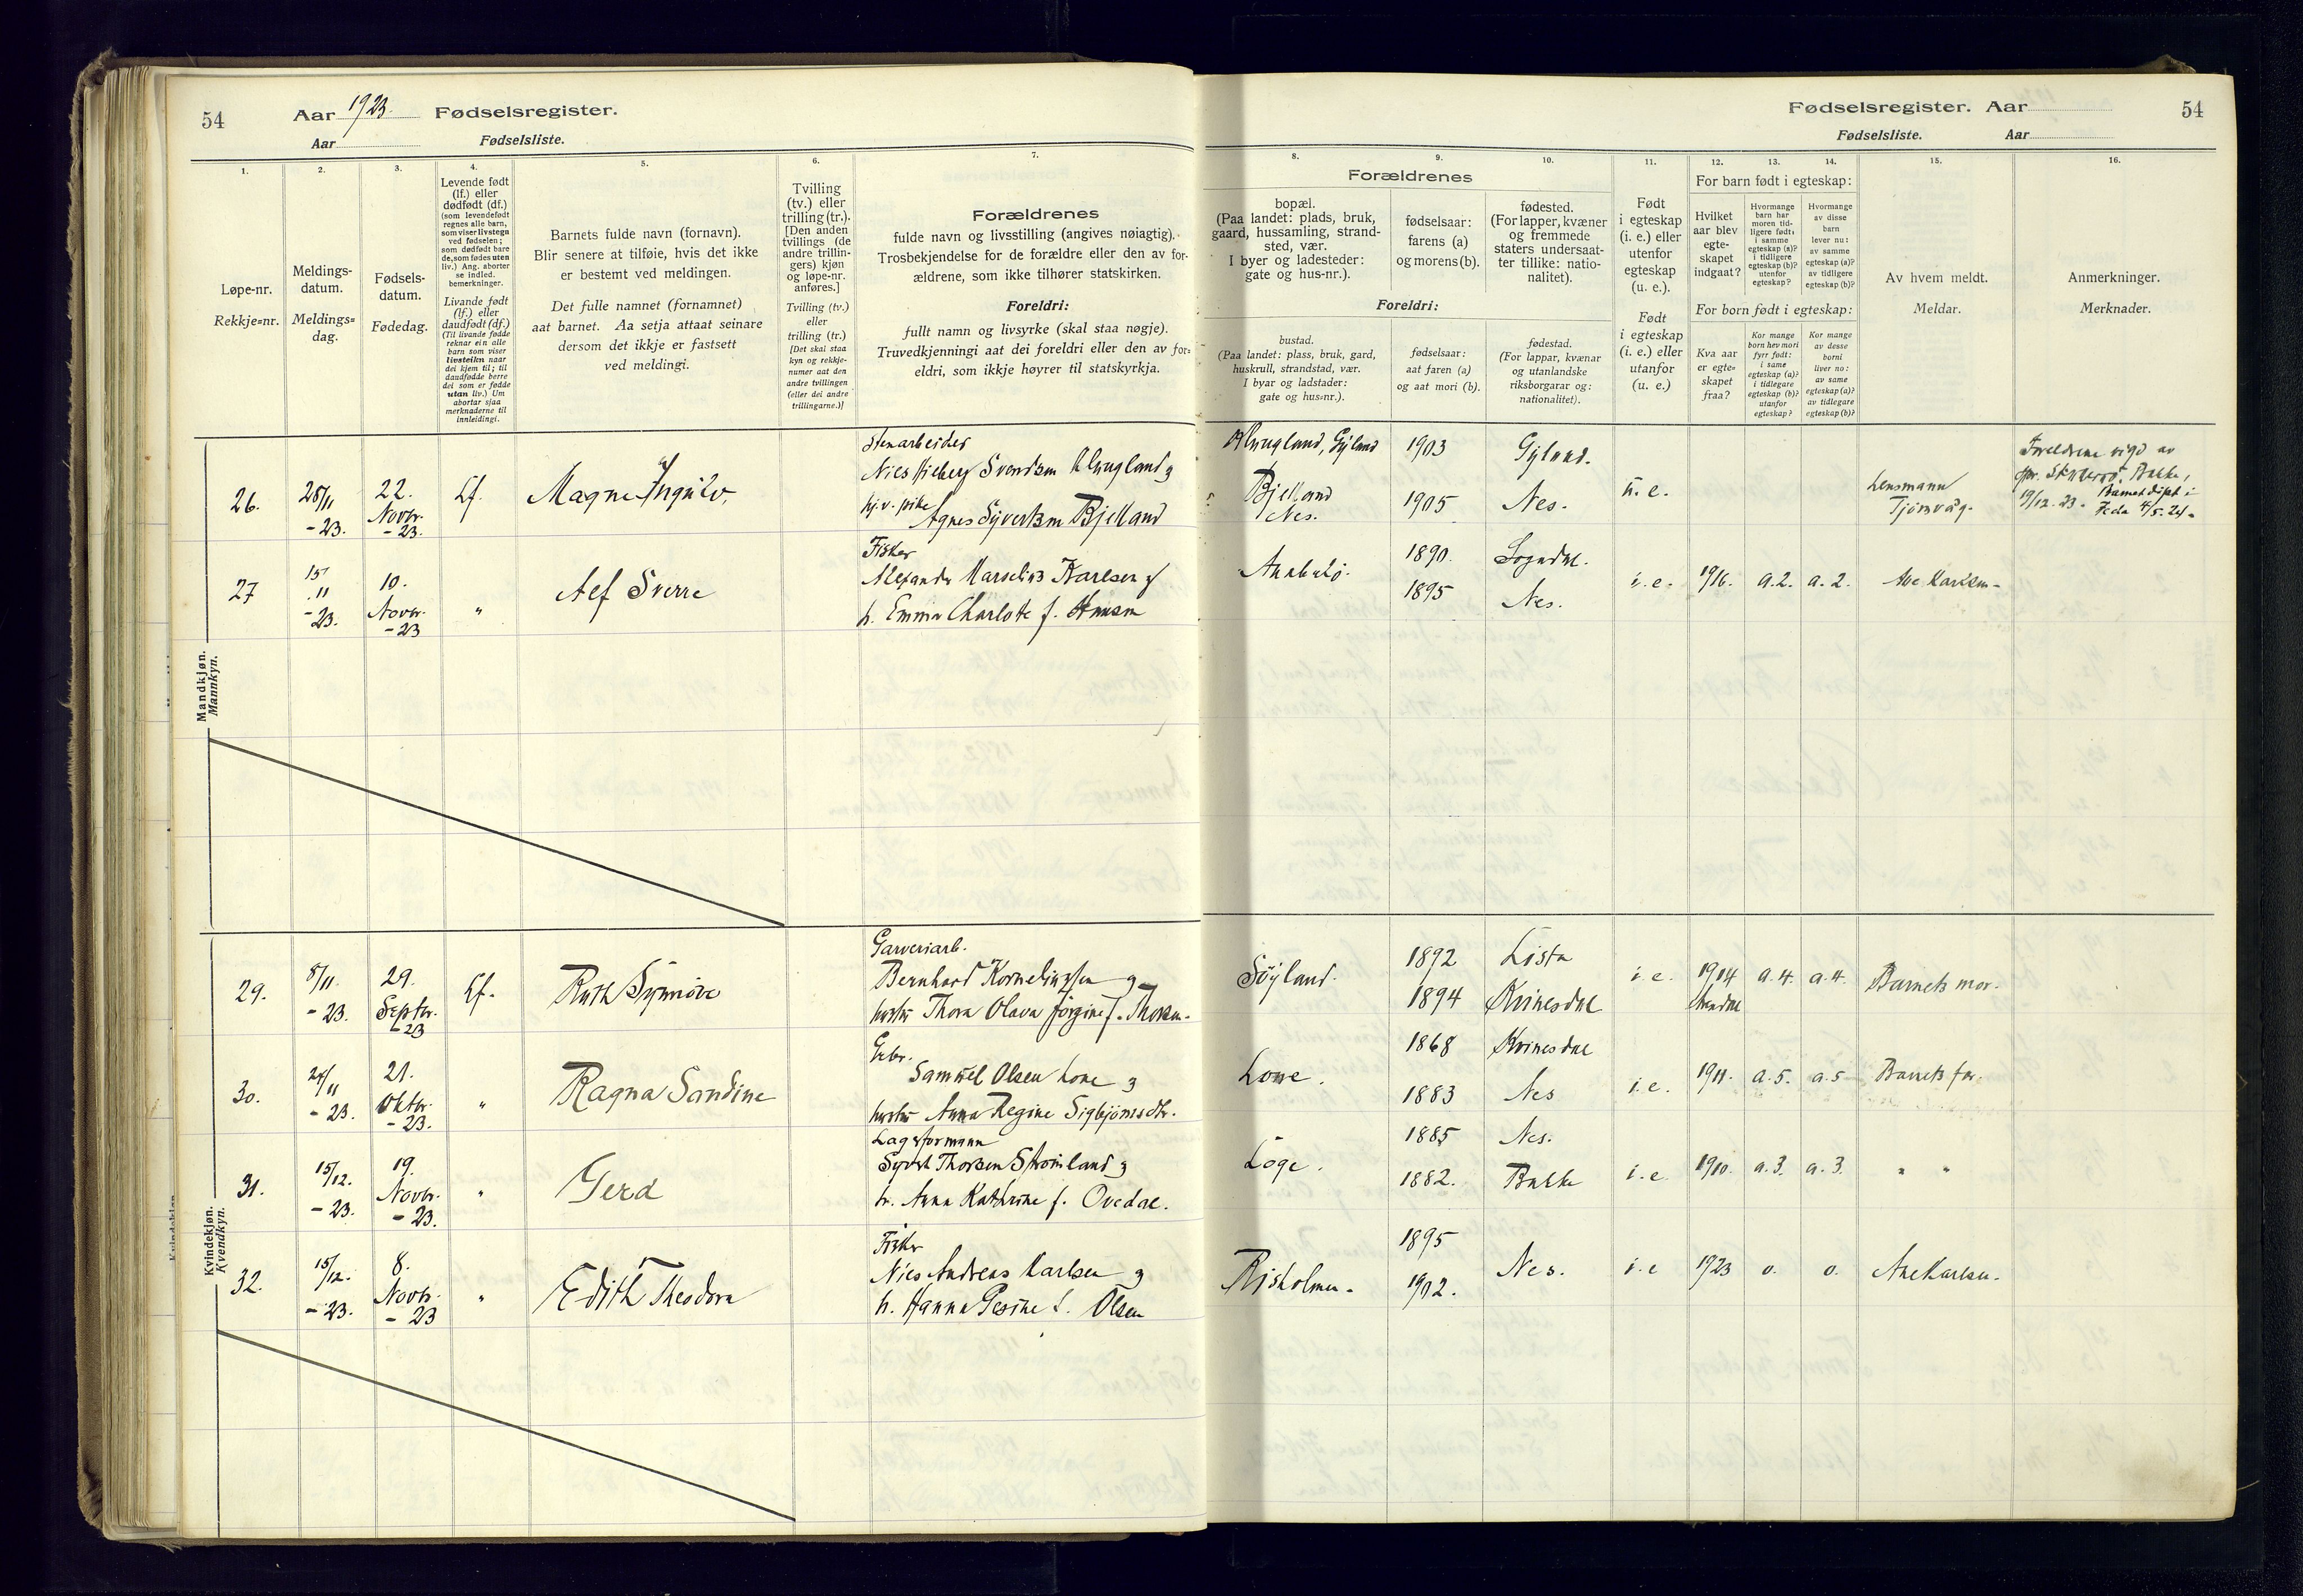 54
Aar 1923. Fødselsregister.
Aar Fødselsliste.
Fødselsregister. Aar
54
Fødselsliste. Aar
1.
Løpe-nr.
Rekkje=nr.
2.
Meldings-
datum.
Meldings=
dag.
3.
Fødsels-
datum.
Fødedag.
4.
Levende født
(lf.) eller
dødfødt (df.)
(som levendefødt
regnes alle barn,
som viser livstegn
ved fødselen;
som dødfødt bare
de, som fødes uten
liv.) Ang. aborter
se indled.
bemerkninger.
Livande født
(lf.) eller
daudfødt (df.)
(Til livande fødde
reknar ein alle
barn som viser
livsteikn naar
dei kjem til; til
daudfødde berre
dei som er fødde
utan liv.) Um
abortar sjaa
merknaderne til
innleidingi.
5.
Barnets fulde navn (fornavn).
Blir senere at tilføie, hvis det ikke
er bestemt ved meldingen.
Det fulle namnet (fornamnet)
aat barnet. Aa setja attaat seinare
dersom det ikkje er fastsett
ved meldingi.
6.
Tvilling
(tv.) eller
trilling (tr.).
[Den anden
tvillings (de
andre trillin-
gers) kjøn
og løpe-nr.
anføres.]
Tvilling (tv.)
eller
trilling (tr.)
[Det skal staa
kyn og rekkje-
numer aat den
andre tvillingen
(eller dei andre
trillingarne.)]
7.
Forældrenes
fulde navn og livsstilling (angives nøiagtig).
Trosbekjendelse for de forældre eller den av for-
ældrene, som ikke tilhører statskirken.
Foreldri:
fullt namn og livsyrke (skal staa nøgje).
Truvedkjenningi aat dei foreldri eller den av for=
eldri, som ikkje høyrer til statskyrkja.
8.
Forældrenes
bopæl.
(Paa landet: plads, bruk,
gaard, hussamling, strand-
sted, vær.
I byer og ladesteder:
gate og hus-nr.).
Foreldri:
bustad.
(Paa landet: plass, bruk, gard,
huskrull, strandstad, vær.
I byar og ladstader:
gate og hus=nr.).
9.
fødselsaar:
farens (a)
og morens (b).
fødselsaar:
aat faren (a)
og aat mori (b).
10.
fødested.
(For lapper, kvæner
og fremmede
staters undersaat-
ter tillike: natio-
nalitet).
fødestad.
(For lappar, kvænar
og utanlandske
riksborgarar og:
nationalitet).
11.
Født
i egteskap
(i. e.) eller
utenfor
egteskap
(u. e.).
Født
i egteskap
(i. e.) eller
utanfor
(u. e.)
12.
13.
14.
For barn født i egteskap:
Hvilket
aar blev
egte-
skapet
indgaat?
Hvormange
barn har
moren tid-
ligere født:
i samme
egteskap (a)?
i tidligere
egteskap (b)?
utenfor
egteskap?
Hvormange
av disse
barn
lever nu:
av samme
egteskap (a)?
av tidligere
egteskap (b)?
For born født i egteskap:
Kva aar
er egte=
skapet
fraa?
Kor mange
born hev mori
fyrr født:
i same
egteskap (a)?
i tidlegare
egteskap (b)?
utanfor
egteskap?
Kor mange
av desse
borni
liver no:
av same
egteskap (a)?
av tidlegare
egteskap (b)?
15.
Av hvem meldt.
Meldar.
16.
Anmerkninger.
Merknader.
Mandkjøn.
Mannkyn.
26. 28/11 -23. 22. Novbr. -23. Lf. Magne Ingulv.
Stenarbeider
Svendsen
Agnes Syvertsen Bjelland
Gyland
Bjelland
Nes.
1903
1905
Gyland.
Nes.
u. e.
Lensmann
Tjømvåg.
Foreldrene vigd av
Bakke,
19/12. 23. Barnet døpt i
Feda
27 15/11 -23. 10. Novbr. -23 " Alf Sverre
Fisker
Marselius Karlsen
h. Emma Charlote f. Hansen
Anabelø.
1890.
1895
Sogndal.
Nes.
i. e. 1916. a. 2. a. 2. Karlsen
Kvindekjøn.
Kvendkyn.
29. 8/11. -23. 29. Septbr. -23 Lf. Ruth Synnøve
Garveriarb.
Bernhard Korneliussen
hustru Thora Olava Jørgine f. Thorsen.
Søyland.
1892
1894
Lista
Kvinesdal
i. e. 1914 a. 4. a. 4. Barnets mor.
30. 24/11 -23. 21. Oktbr. -23. " Ragna Sandine
Gbr.
Samuel Olsen Lone
hustru Anna Regine Sigbjørnsdtr.
Lone.
1868
1883
Kvinesdal
Nes
i. e. 1911. a. 5. a. 5 Barnets far.
31. 15/12. -23. 19. Novbr. -23. " Gerd
Lagerformann
Syvert Thorsen Strømland
h. Anna Kathrine f. Ovedal.
Løge.
1885
1882.
Nes.
Bakke
i. e. 1910. a. 3. a. 3. " "
32. 15/12. -23. 8. Novbr. -23 " Edith Theodora
Fisker
Nils Andreas Karlsen
h. Hanna Gesine f. Olsen
Risholmen.
1895
1902.
Nes.
i. e 1923 o. o. Karlsen.